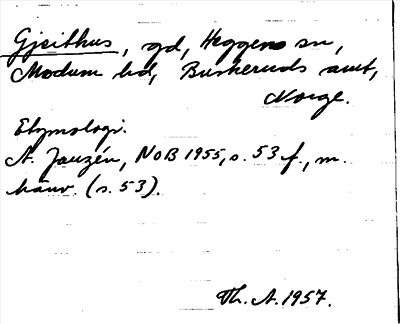 Gjeithus, gd, Heggens sn,
Modum hd, Buskeruds amt,
Norge.
Etymologi.
A. Janzén, NoB 1955, s. 53 f., m.
hänv. (s. 53).
Th. A. 1957.